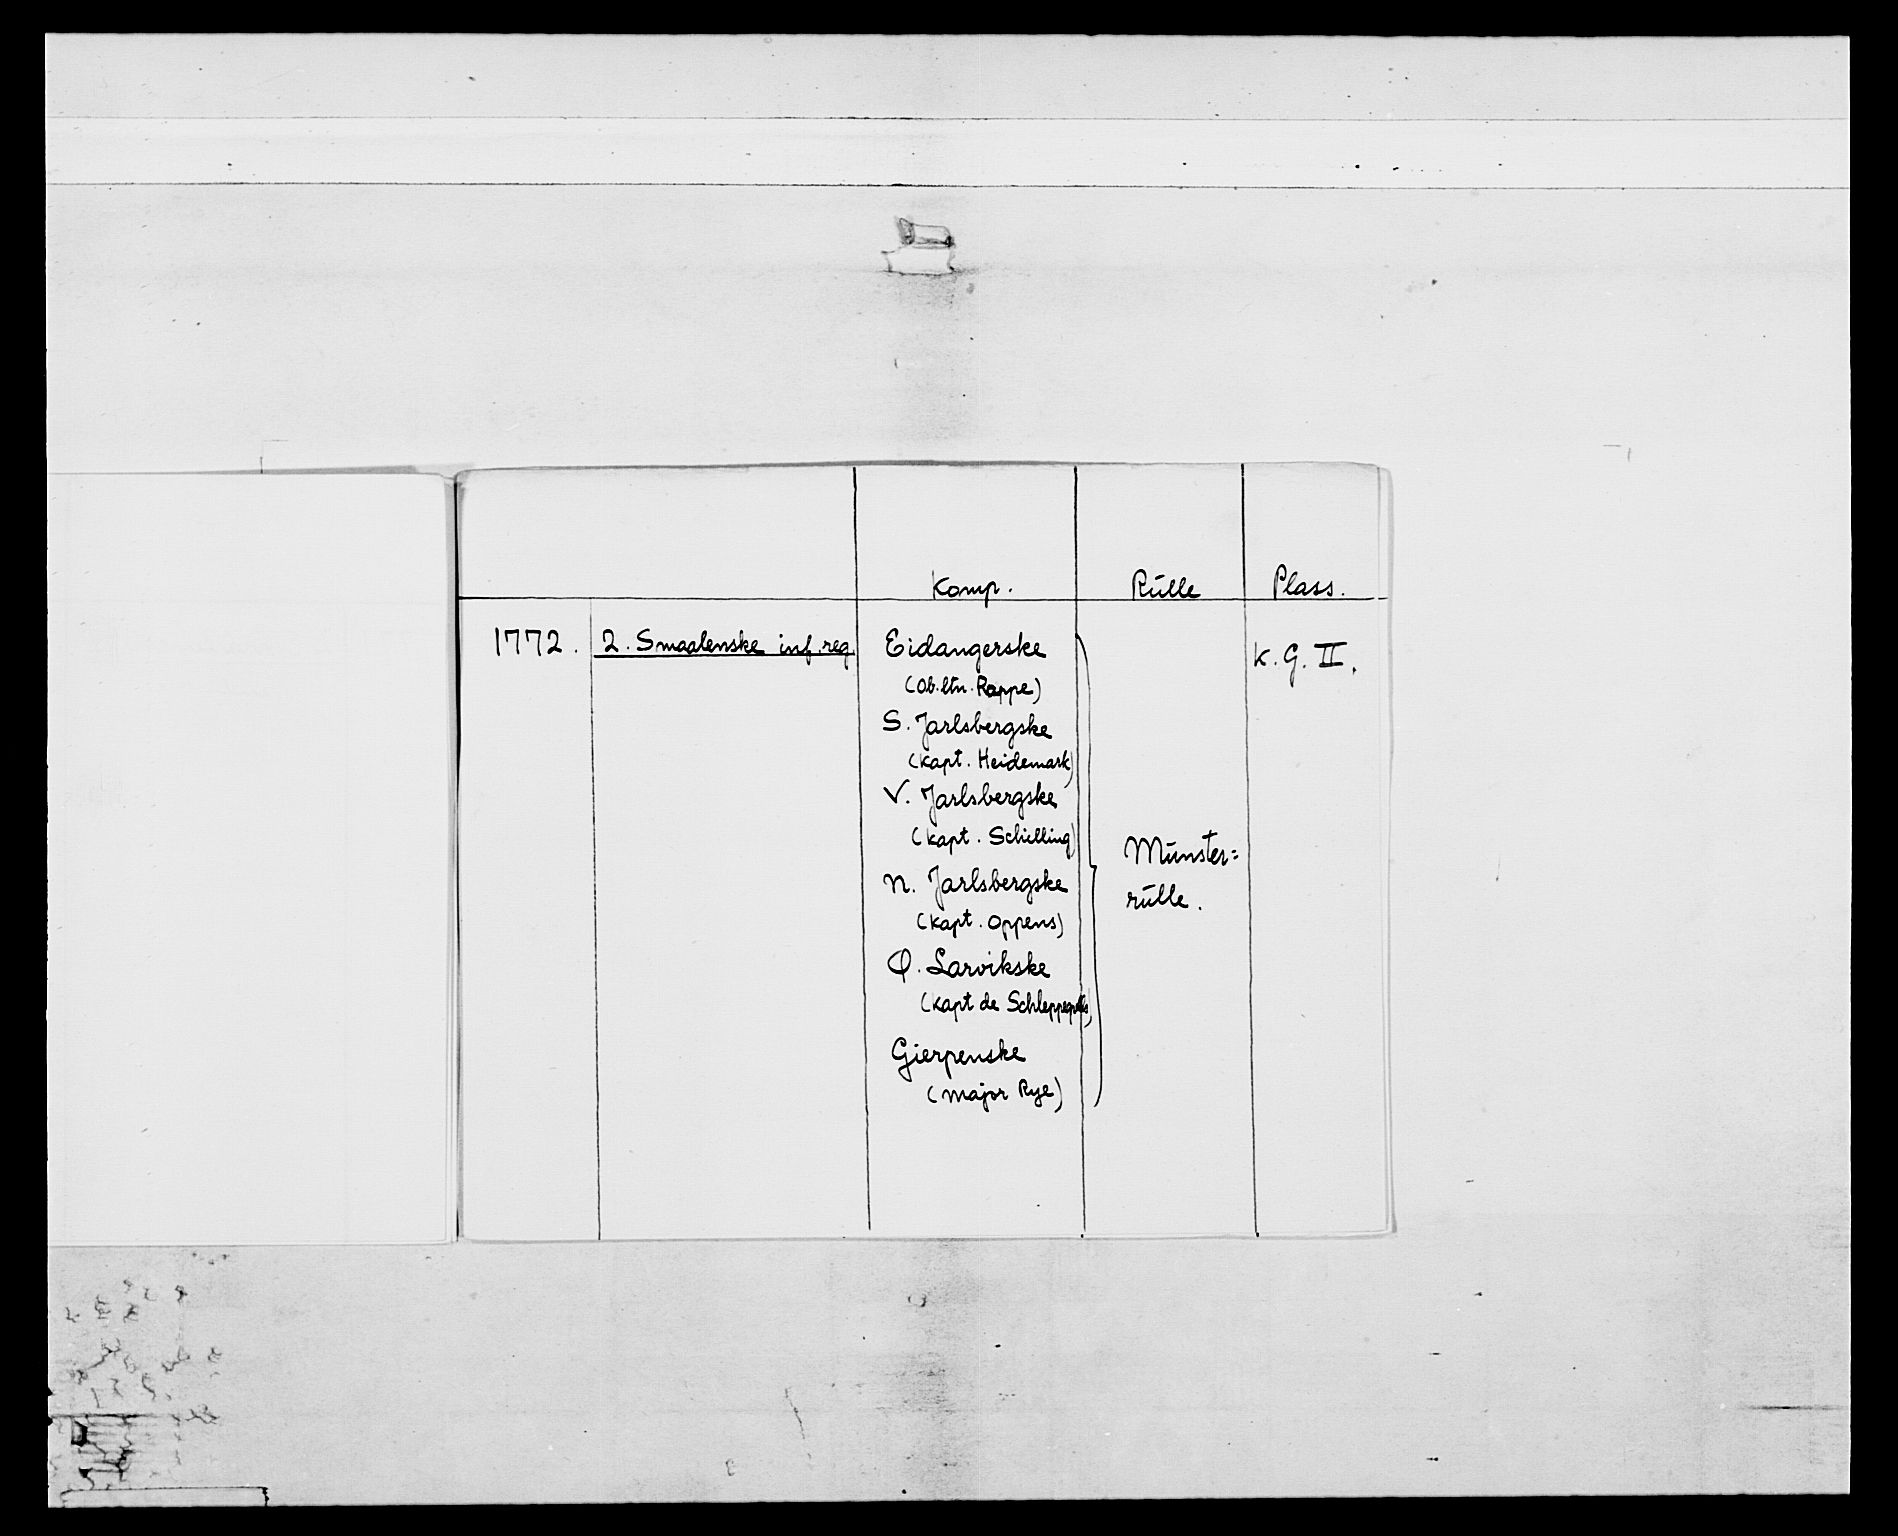 Komp. Rulle Plass.
1772. 2. Smaalenske inf. reg. Eidangerske K. G. II.
(Ob. ltn. Rappe)
S. Jarlsbergske
(Kapt. Heidemark)
V. Jarlsbergske
(Kapt. Schilling)
Múnster=
N. Jarlsbergske
rúlle.
(Kapt. Oppens)
Ø. Larvikske
(Kapt de Schleppegrells)
Gierpenske
(Major Rye)